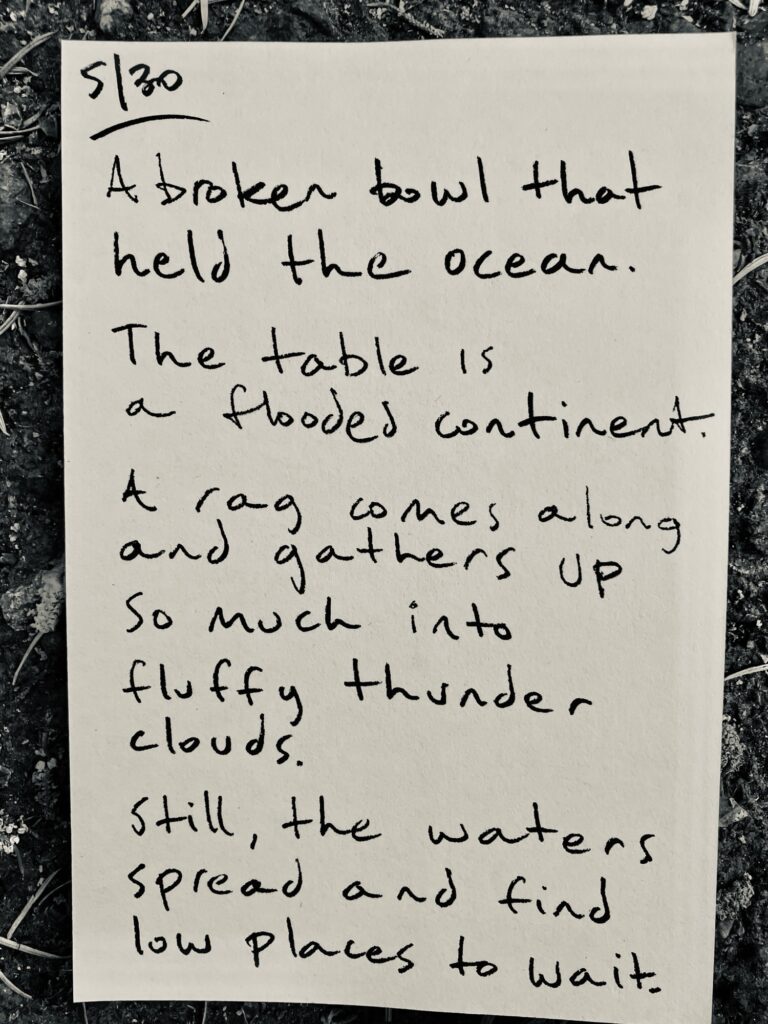 5/30
A broken bowl that
held the ocean.
The table is
a flooded continent.
A rag comes along
and gathers up
so much into
fluffy thunder
clouds.
Still, the waters
spread and find
low places to wait.